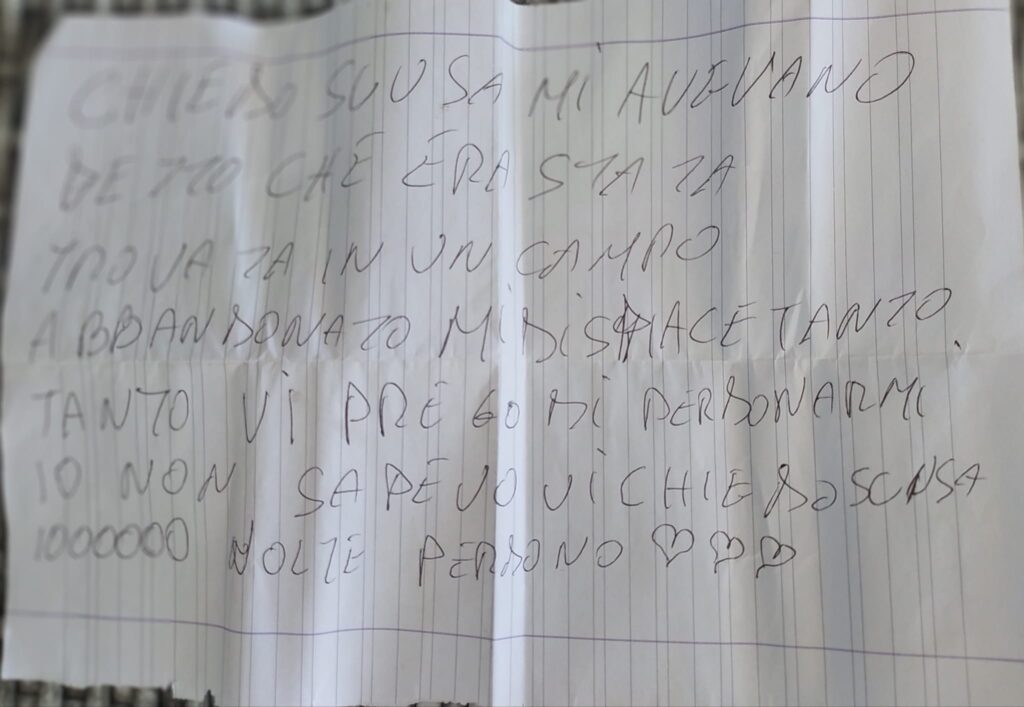 CHIEDO SCUSA MI AVEVANO
DETTO CHE ERA STATA
TROVATA IN UN CAMPO
ABBANDONATO MI DISPIACE TANTO.
TANTO VI PREGO DI PERDONARMI
IO NON SAPEVO VI CHIEDO SCUSA
1000000 VOLTE PERDONO ♡♡♡